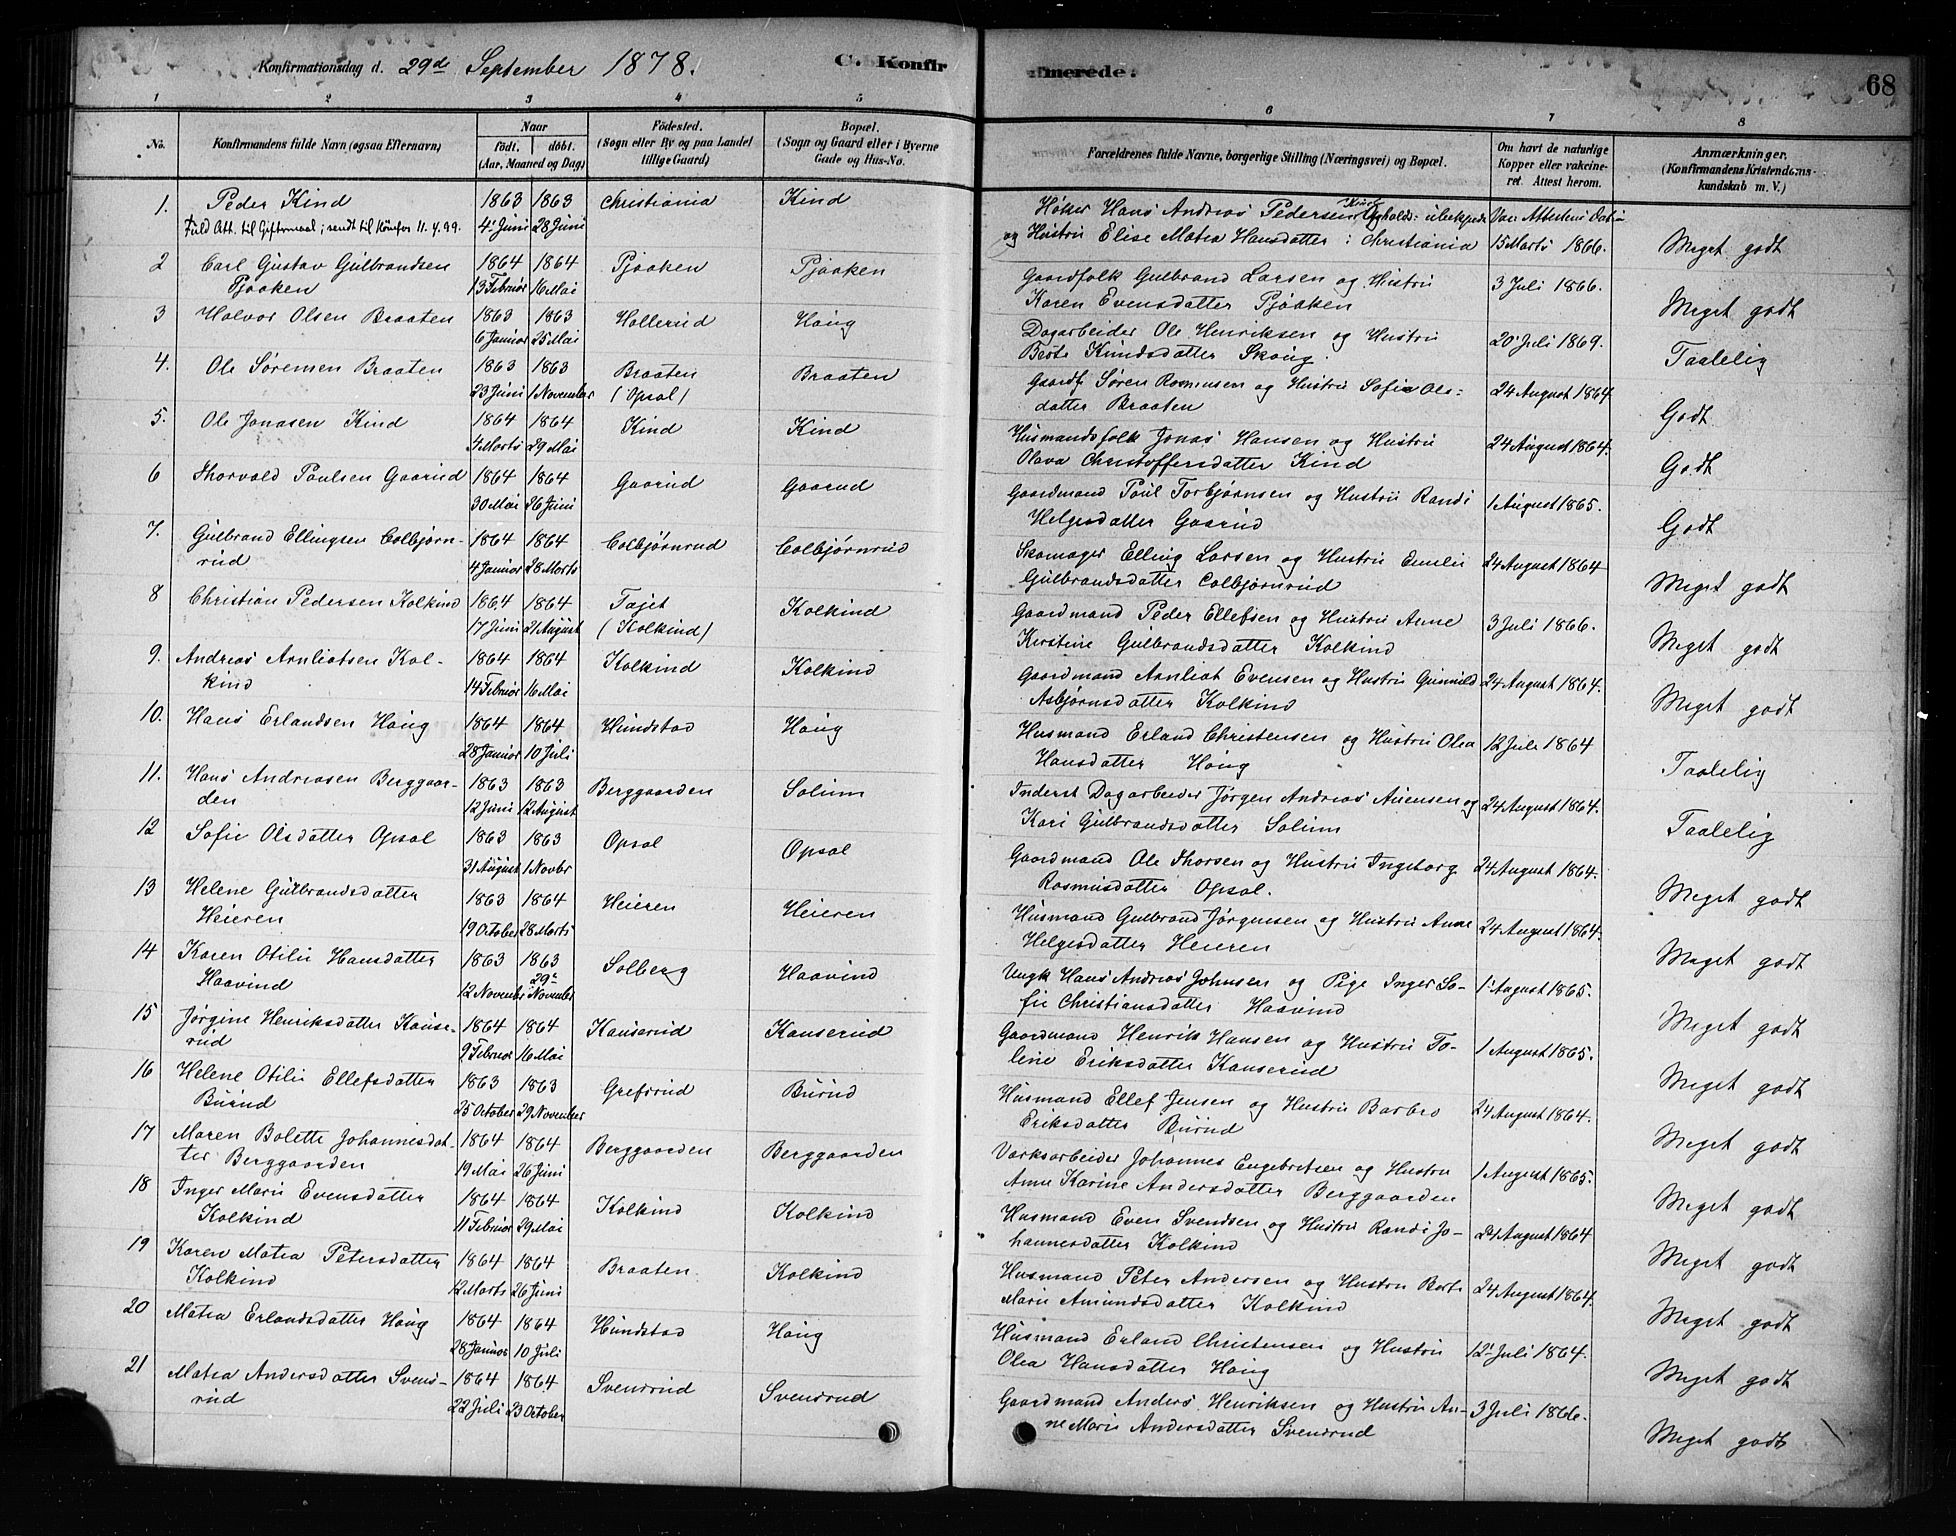 Konfirmationsdag d. 29d September 1878.
C. Konfirmerede.
68
1 2 3 4 5 6 7 8
No.
Konfirmandens fulde Navn (ogsaa Efternavn)
Naar
födt. döbt.
(Aar, Maaned og Dag)
Födested.
(Sogn eller By og paa Landet
tillige Gaard)
Bopæl.
(Sogn og Gaard eller i Byerne
Gade og Hus-No.
Forældrenes fulde Navne, borgerlige Stilling (Næringsvei) og Bopæl.
Om havt de naturlige
Kopper eller vakcine-
ret. Attest herom.
Anmærkninger.
(Konfirmandens Kristendoms-
kundskab m. V.)
1. Peder Kind 1863 1863 Christiania Kind Høker Hans Andreas Pedersen Opholds: ubekjendt Vac. Attestens Dato
Fuld Att. til Giftermaal; sendt til 11.4.99. 4. Juni 28 Juni og Hustru Elise Matea Hansdatter i Christiania 15 Marts 1866. Meget godt
2 Carl Gustav Gulbrandsen 1864 1864 Pjaaken Pjaaken Gaardfolk Gulbrand Larsen og Hustru 3 Juli 1866.
Pjaaken 13 Februar 16 Mai Karen Evensdatter Pjaaken Meget godt
3 Halvor Olsen Braaten 1863 1863 Hollerud Haug Dagarbeider Ole Henriksen og Hustru 20 Juli 1869.
6 Januar 25 Mai Berte Knudsdatter Skoug. Taalelig
4. Ole Sørensen Braaten 1863 1863 Braaten Braaten Gaardf. Søren Rasmusen og Hustru Sofie Ols- 24 August 1864
23 Juni 1 November (Opsal) datter Braaten Godt
5. Ole Jonasen Kind 1864 1864 Kind Kind Husmandsfolk Jonas Hansen og Hustru 24 August 1864.
4 Marts 29 Mai Olava Christoffersdatter Kind Godt
6 Thorvald Paulsen Gaarud 1864 1864 Gaarud Gaarud Gaardmand Paul Torbjørnsen og Hustru Randi 1 August 1865.
30 Mai 26 Juni Helgesdatter Gaarud Godt
7. Gulbrand Ellingsen Colbjørn- 1864 1864 Colbjørnrud Colbjørnrud Skomager Elling Larsen og Hustru Emelie 24 August 1864
rud 4 Januar 28 Marts Gulbrandsdatter Colbjørnrud Meget godt
8 Christian Pedersen Kolkind 1864 1864 Tajet Kolkind Gaardmand Peder Ellefsen og Hustru Anne 3 Juli 1866.
17 Juni 21 August (Kolkind) Kerstine Gulbrandsdatter Kolkind Meget godt
9. Andreas Arnliotsen Kol- 1864 1864 Kolkind Kolkind Gaardmand Arnliot Evensen og Hustru Gunnild 24 August 1864.
kind 14 Februar 16 Mai Asbjørnsdatter Kolkind Meget godt
10. Hans Erlandsen Haug 1864 1864 Hundstad Haug Husmand Erland Christensen og Hustru Olea 12 Juli 1864
28 Januar 10 Juli Hansdatter Haug Taalelig
11. Hans Andreasen Berggaar- 1863 1863 Berggaarden Solum Inderst Dagarbeider Jørgen Andreas og 24 August 1864.
den 12 Juni 12 August Kari Gulbrandsdatter Solum Taalelig
12 Sofie Olsdatter Opsal 1863 1863 Opsal Opsal Gaardmand Ole Thorsen og Hustru Ingeborg 24 August 1864.
31 August 1 Novbr Rasmusdatter Opsal. Meget godt
13 Helene Gulbrandsdatter 1863 1864 Heieren Heieren Husmand Gulbrand Jørgensen og Hustru Anne 24 August 1864.
Heieren 19 October 28 Marts Helgesdatter Heieren Meget godt
14 Karen Otilie Hansdatter 1863 1863 Solberg Haavind Ungk Hans Andreas Johnsen og Pige Inger So- 1 August 1865.
Haavind 12 November 29 November fie Christiansdatter Haavind Meget godt
15 Jørgine Henriksdatter Kanse- 1864 1864 Kanserud Kanserud Gaardmand Henrik Hansen og Hustru To- 1 August 1865.
rud 9 Februar 16 Mai line Eriksdatter Kanserud Meget godt
16 Helene Otilie Ellefsdatter 1863 1863 Grefsrud Burud Husmand Ellef Jensen og Hustru Barbro 24 August 1864.
Burud 25 October 29 November Eriksdatter Burud Meget godt
17 Maren Bolette Johannesdat- 1864 1864 Berggaarden Berggaarden Værksarbeider Johannes Engebretsen og Hustru 1 August 1865.
ter Berggaarden 19 Mai 26 Juni Anne Karine Andersdatter Berggaarden Meget godt
18 Inger Marie Evensdatter 1864 1864 Kolkind Kolkind Husmand Even Svendsen og Hustru Randi Jo- 24 August 1864
Kolkind 11 Februar 29 Mai hannesdatter Kolkind Meget godt
19 Karen Matea Petersdatter 1864 1864 Braaten Kolkind Husmand Peter Andersen og Hustru Berte 24 August 1864.
Kolkind 12 Marts 26 Juni Marie Amundsdatter Kolkind Meget godt
20 Matea Erlandsdatter Haug 1864 1864 Hundstad Haug Husmand Erland Christensen og Hustru 12 Juli 1864.
28 Januar 10 Juli Olea Hansdatter Haug Meget godt
21 Matea Andersdatter Svens- 1864 1864 Svensrud Svensrud Gaardmand Anders Henriksen og Hustru An- 3 Juli 1866.
rud 22 Juli 23 October ne Marie Andersdatter Svensrud Meget godt